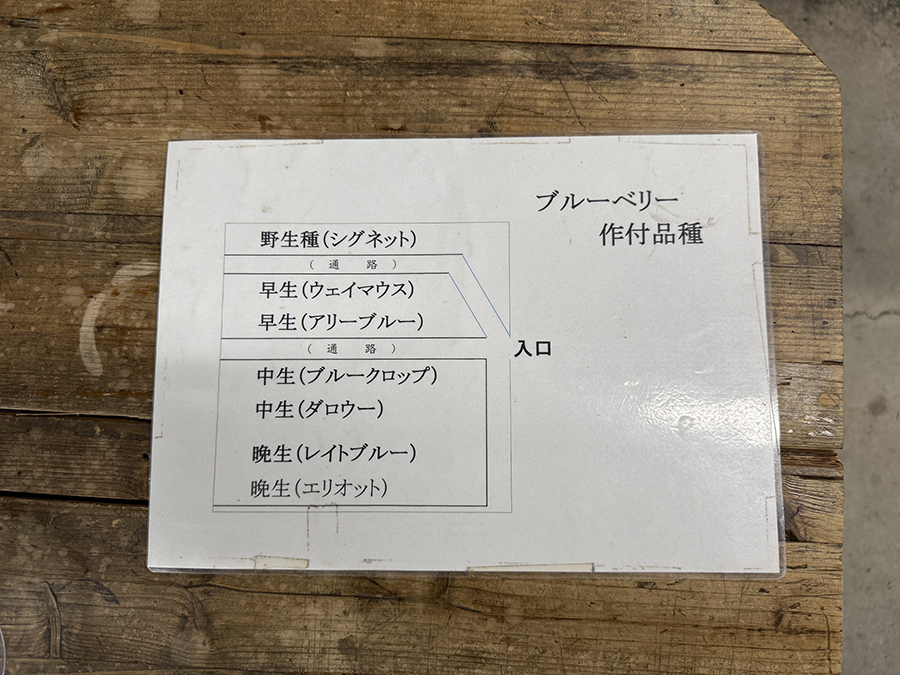 ブルーベリー
作付品種
野生種(シグネット)
(通 路)
早生(ウェイマウス)
早生(アリーブルー)
(通 路)
入口
中生(ブルークロップ)
中生(ダロウー)
晩生(レイトブルー)
晩生(エリオット)